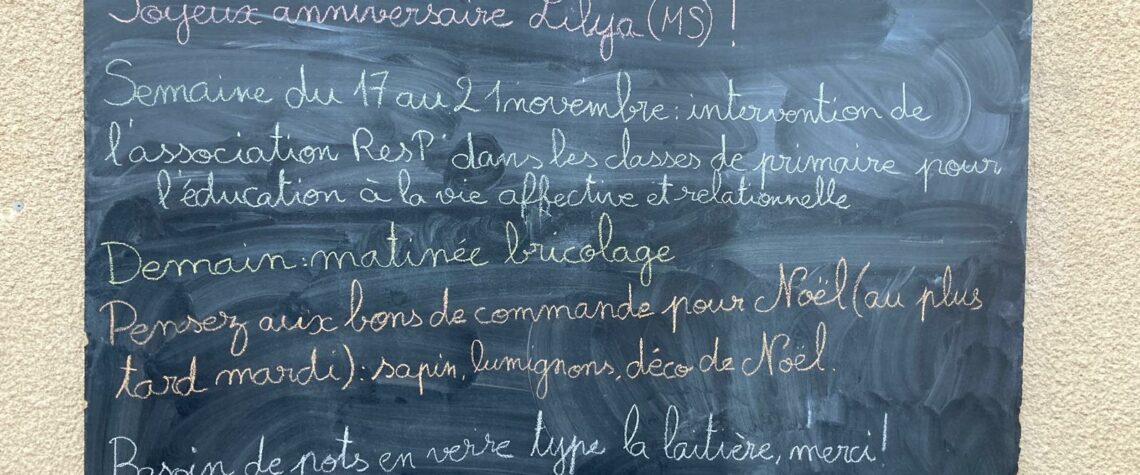 Joyeux anniversaire Lilya (MS) !
Semaine du 17 au 21 novembre : intervention de
l'association ResP' dans les classes de primaire pour
l'éducation à la vie affective et relationnelle
Demain : matinée bricolage
Pensez aux bons de commande pour Noël (au plus
tard mardi) : sapin, lumignons, déco de Noël.
Besoin de pots en verre type la laitière, merci !